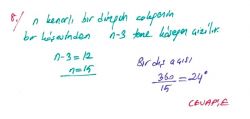 8-/ n kenarlı bir düzgün çokgenin
bir köşesinden n-3 tane köşegen çizilir.
n-3=12
n=15
Bir dış açısı
360/15 = 24°
CEVAP: E